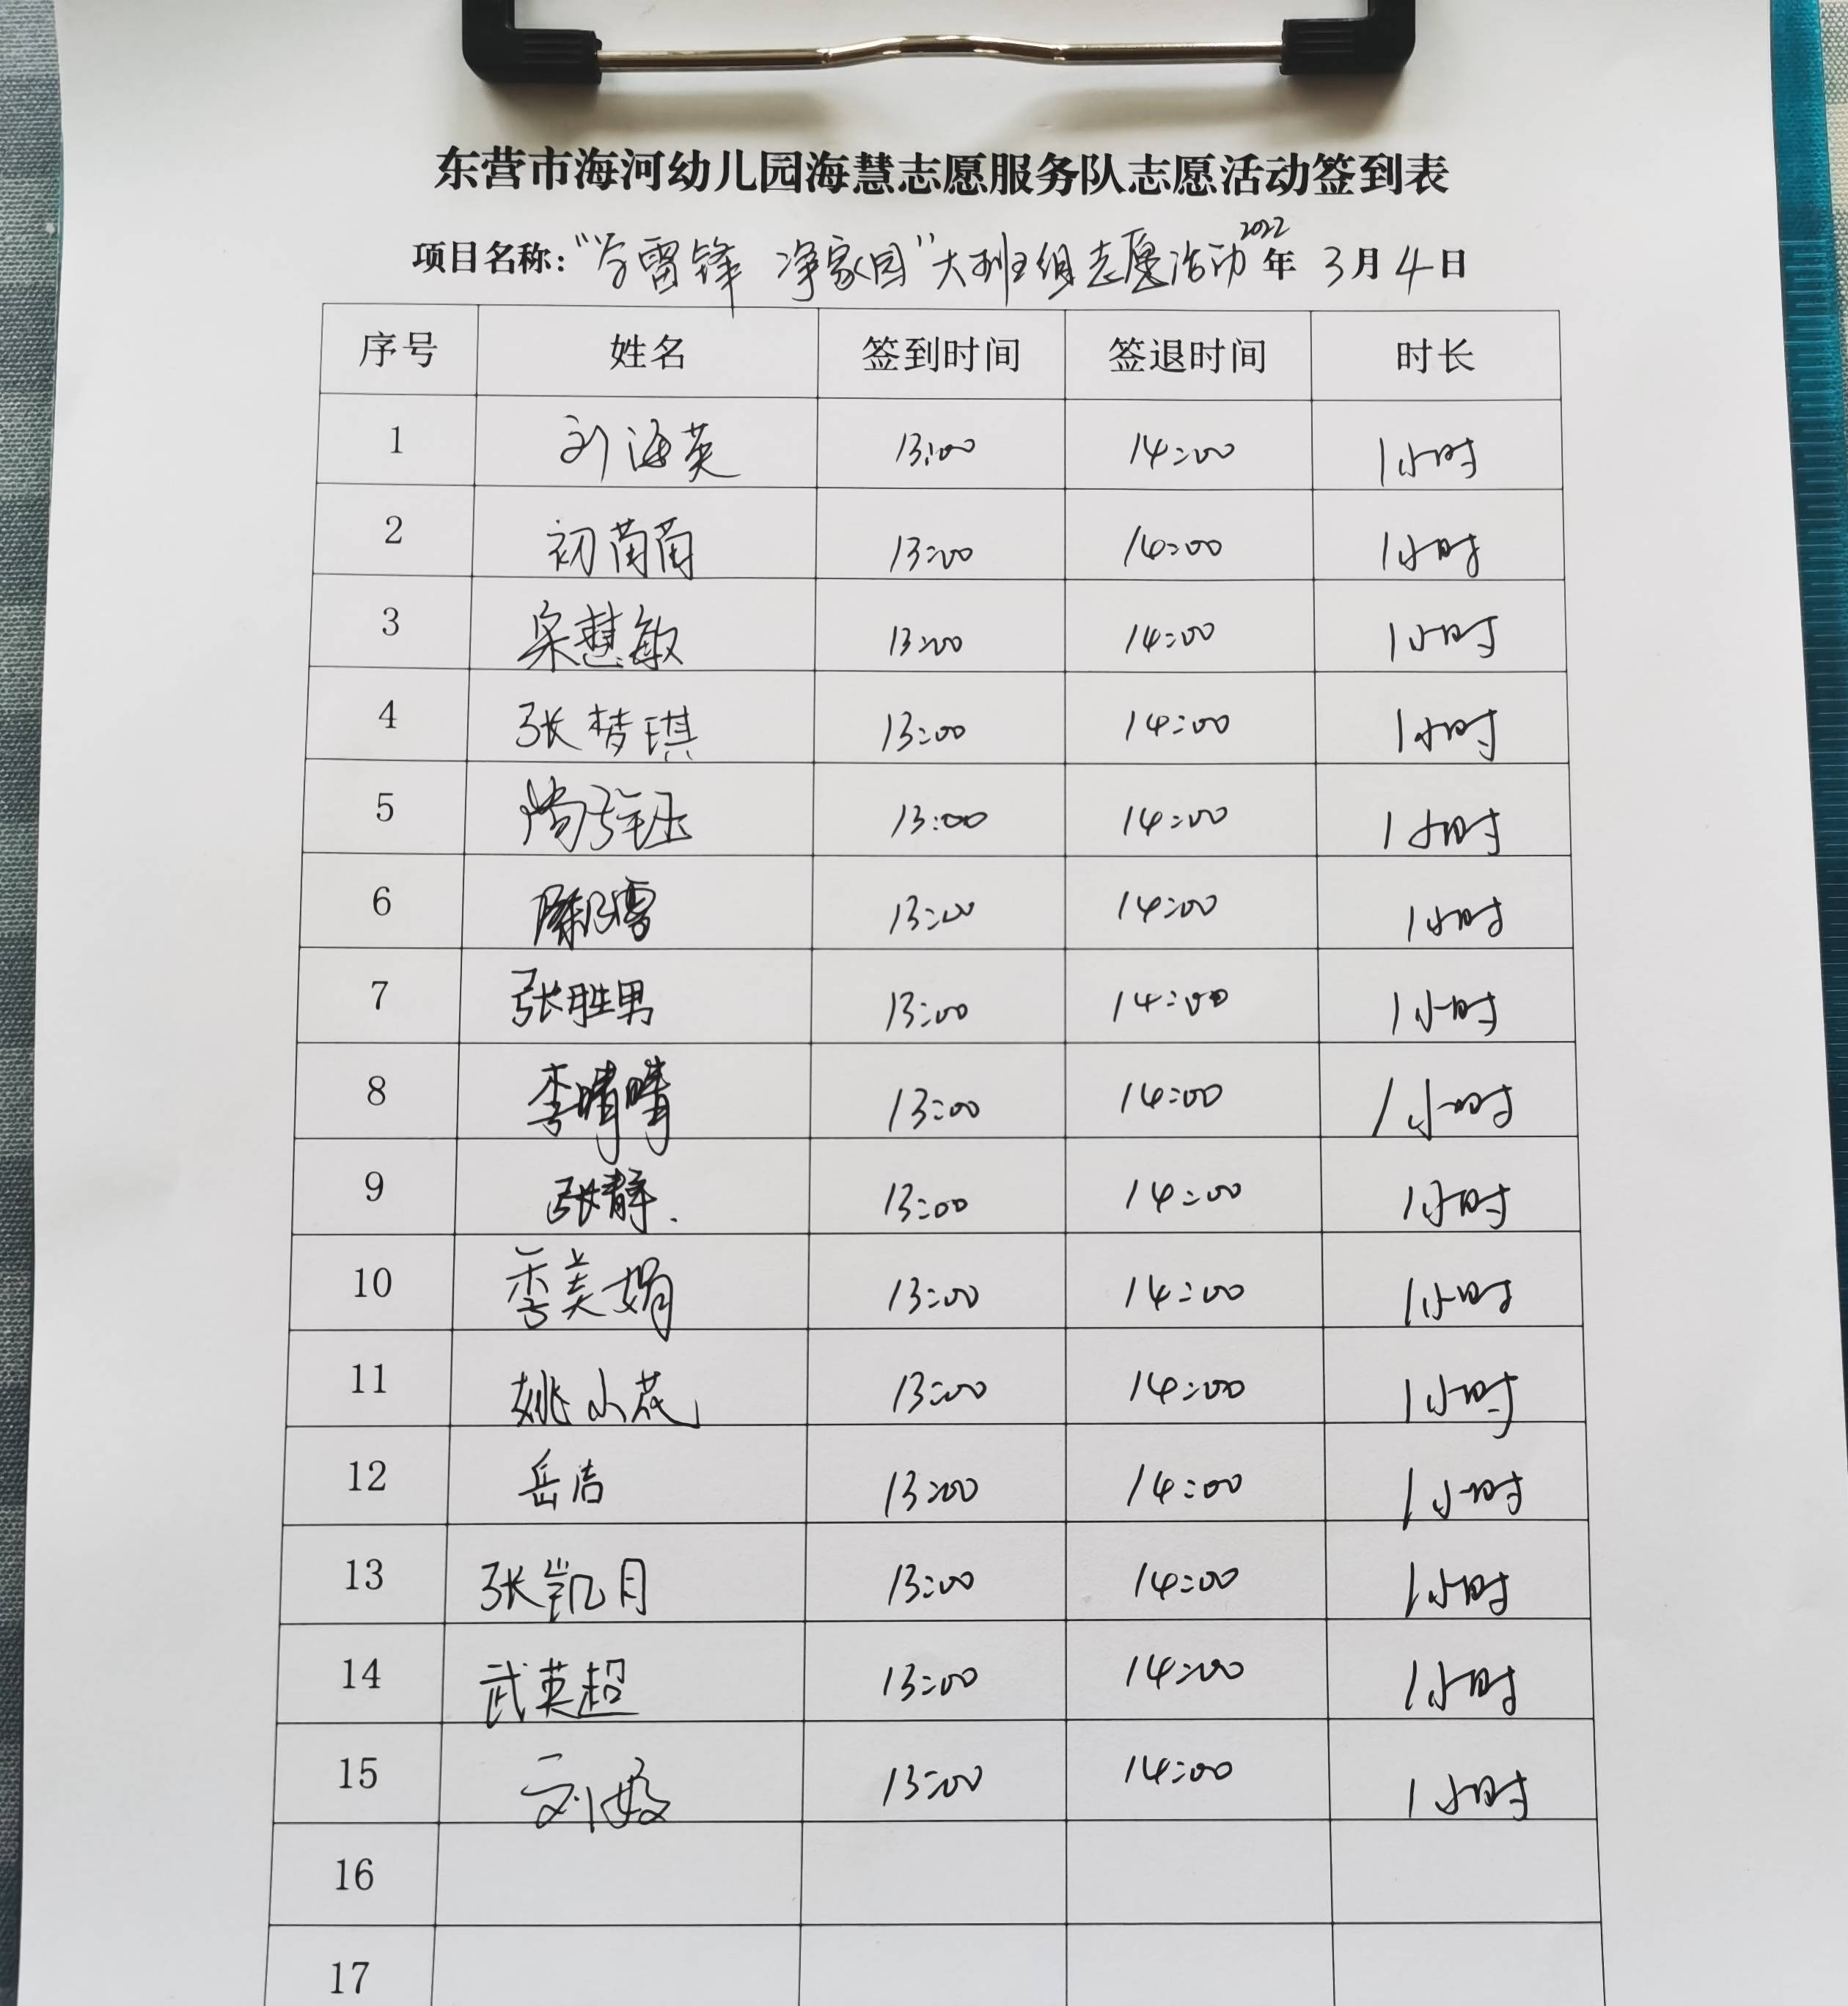 东营市海河幼儿园海慧志愿服务队志愿活动签到表
项目名称：“学雷锋 净家园”大班组志愿活动 2022年 3月4日
序号 姓名 签到时间 签退时间 时长
1 刘海英 13:00 14:00 1小时
2 初苗苗 13:00 14:00 1小时
3 宋慧敏 13:00 14:00 1小时
4 张梦琪 13:00 14:00 1小时
5 13:00 14:00 1小时
6 13:00 14:00 1小时
7 张胜男 13:00 14:00 1小时
8 李晴晴 13:00 14:00 1小时
9 张静 13:00 14:00 1小时
10 季美娟 13:00 14:00 1小时
11 姚小茂 13:00 14:00 1小时
12 岳洁 13:00 14:00 1小时
13 张凯月 13:00 14:00 1小时
14 武英超 13:00 14:00 1小时
15 13:00 14:00 1小时
16
17